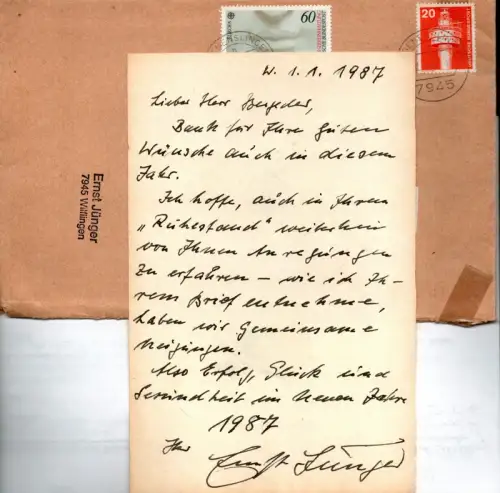 60
20
7945
Ernst Jünger
7945 Wilflingen
W. 1.1. 1987
Lieber Herr
Dank für Ihre guten
Wünsche auch in diesem
Jahr.
Ich hoffe, auch in Ihrem
„Ruhestand" weiterhin
von Ihnen Anregungen
zu erfahren – wie ich Ih-
rem Brief entnehme,
haben wir gemeinsame
Neigungen.
Also Erfolg, Glück und
Gesundheit im Neuen Jahre
1987
Ihr
Ernst Jünger